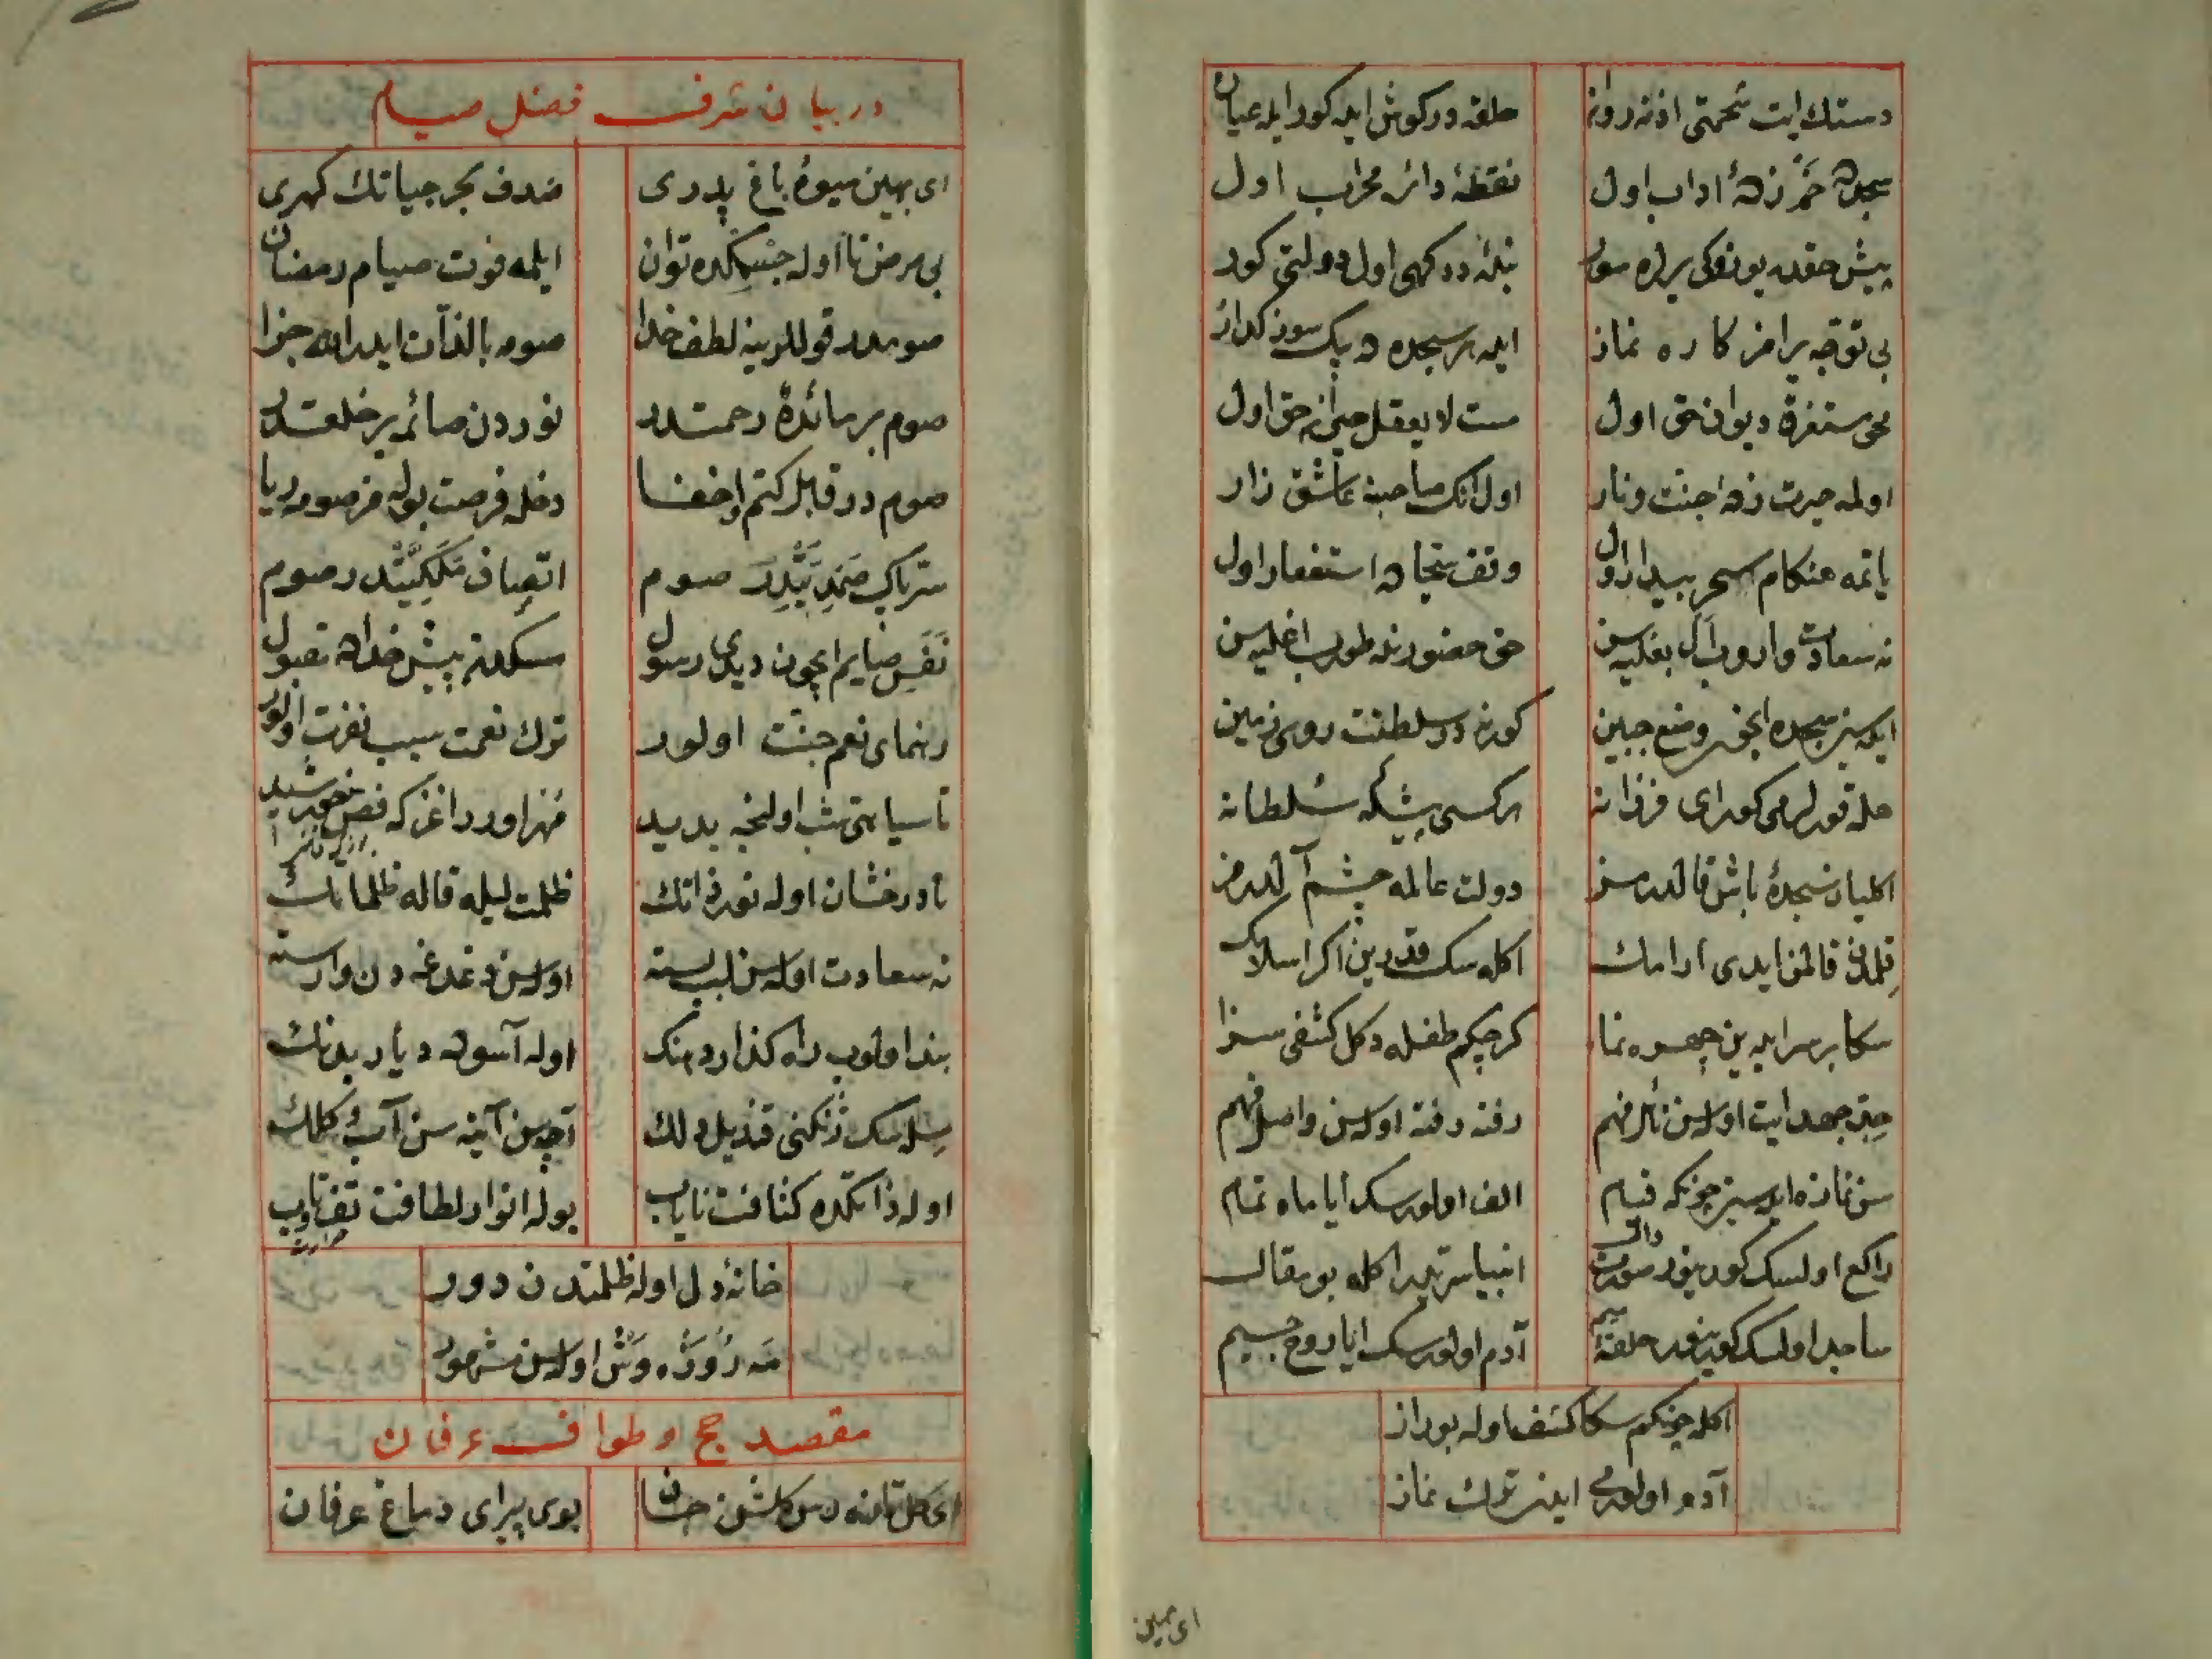 حلقه در کوش ایله کور ایله عیان
سجده خم زدهٔ اداب اول نقطهٔ دائرهٔ محراب اول
پیش حقده بو
بی توجه یرامز کاره نماز ایله هر سجده ده بیک سوز کداز
محو مستغرق دیوان حق اول مست لا یعقل حیران حق اول
اولمه حیرت زدهٔ جنت و نار اول انک صاحبنه عاشق زار
یاتمه هنکام سحر بیدار اول وقف سجاده استغفار اول
نه سعادت واروب اکلیه سن حق حضورنده طوروب اغلیه سن
ایده سز سجده ایچون وضع جبین کورنور سلطنت روی زمین
حله قوللری کور ای فرزانه هر کسی پیشکه سلطانه
دولت عالمه چشم آلدرمز
قلمدن قالمز ایدی ارامک اکله سک قدرین اکر اسلامک
سکا بر سر ایده ین چهره نما کرچکم طفله دکل کشفی سزا
جد جهد ایت اوله سن نائل فهم رفته رفته اوله سن واصل فهم
سن نمازه ایده سز چونکه قیام الف اولورسک ایا ماه تمام
راکع اولسک کورینور صورت دال انبیا سریدر اکله بو مقال
ساجد اولسک کورینور حلقهٔ میم آدم اولورسک ایا روح جسیم
اکله چونکم سکا کشف اوله بو راز
آدم اولورمی ایدن ترک نماز
ای بهین
در بیان شرف فضل صیام
ای بهین میوهٔ باغ پدری صدف بحر حیاتک کهری
بی مرض تا اوله جسمکده توان ایلمه فوت صیام رمضان
صومدر قوللرینه لطف خدا صومه بالذات ایدر الله جزا
صوم بر مائدهٔ رحمتدر نوردن صائمه بر خلعتدر
صوم در قابل کتم و اخفا دخله فرصت بوله مز صومه ریا
سترباک صمدیتدر صوم اتصاف ملکیتدر صوم
نفس صایم ایچون دیدی رسول مسکدن پیش خداده مقبول
رهنمای نعم جنت اولور ترک نعمت سبب نفرت اولور
تا سیاهی شب اولنجه بدید مهر اورر اغزکه فص خورشید
تا درخشان اوله نور ذاتک ظلمت لیله قاله ظلماتک
نه سعادت اوله سن لب بسته اوله سن دغدغه دن وارسته
بند اولوب راه کذار دهنک اوله آسوده دیار بدنک
سله سک ژنکنی قندیل دلک آچه سن آینه سن آب و کلک
اوله ذاتکده کثافت نایاب بوله انوار لطافت تف و تاب
خانهٔ دل اوله ظلمتدن دور
مه روزه وش اوله سن مشهور
مقصد حج و طواف عرفان
ای کل تازه رس کلشن جان بوی پیرای دماغ عرفان